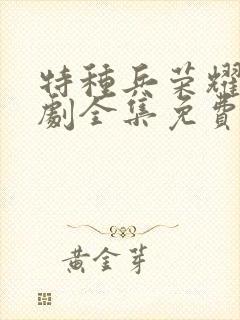 特種兵榮耀
劇全集免費
黃金芽